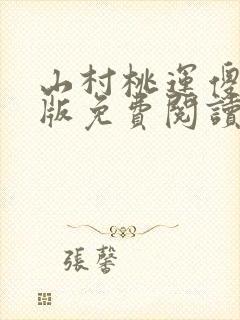 山村桃運傻
版免費閱讀
張馨